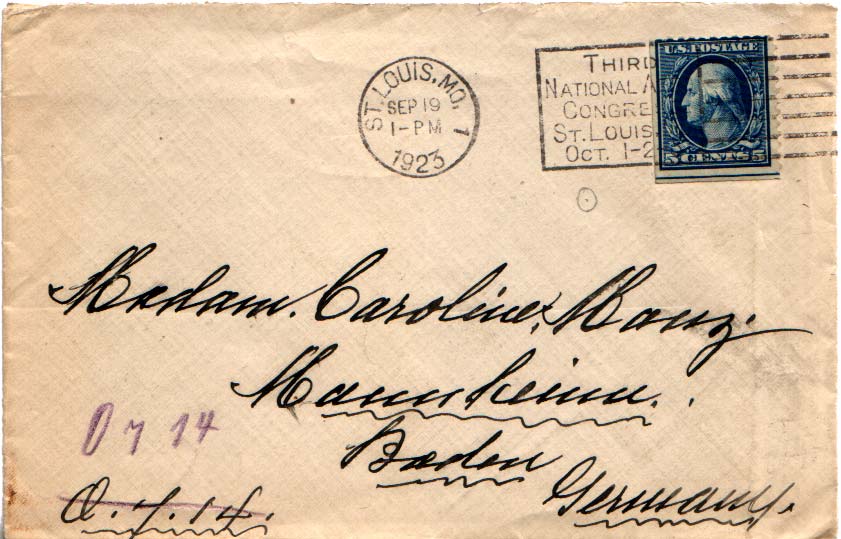 ST. LOUIS, MO. 1
SEP 19
1-PM
1923
THIRD
NATIONAL A
CONGRE
ST. LOUIS
OCT. 1-2
U.S. POSTAGE
5 CENTS 5
Madam. Caroline. Manz.
Mannheim.
Baden
Germany.
O 7 14
O. 7. 14.